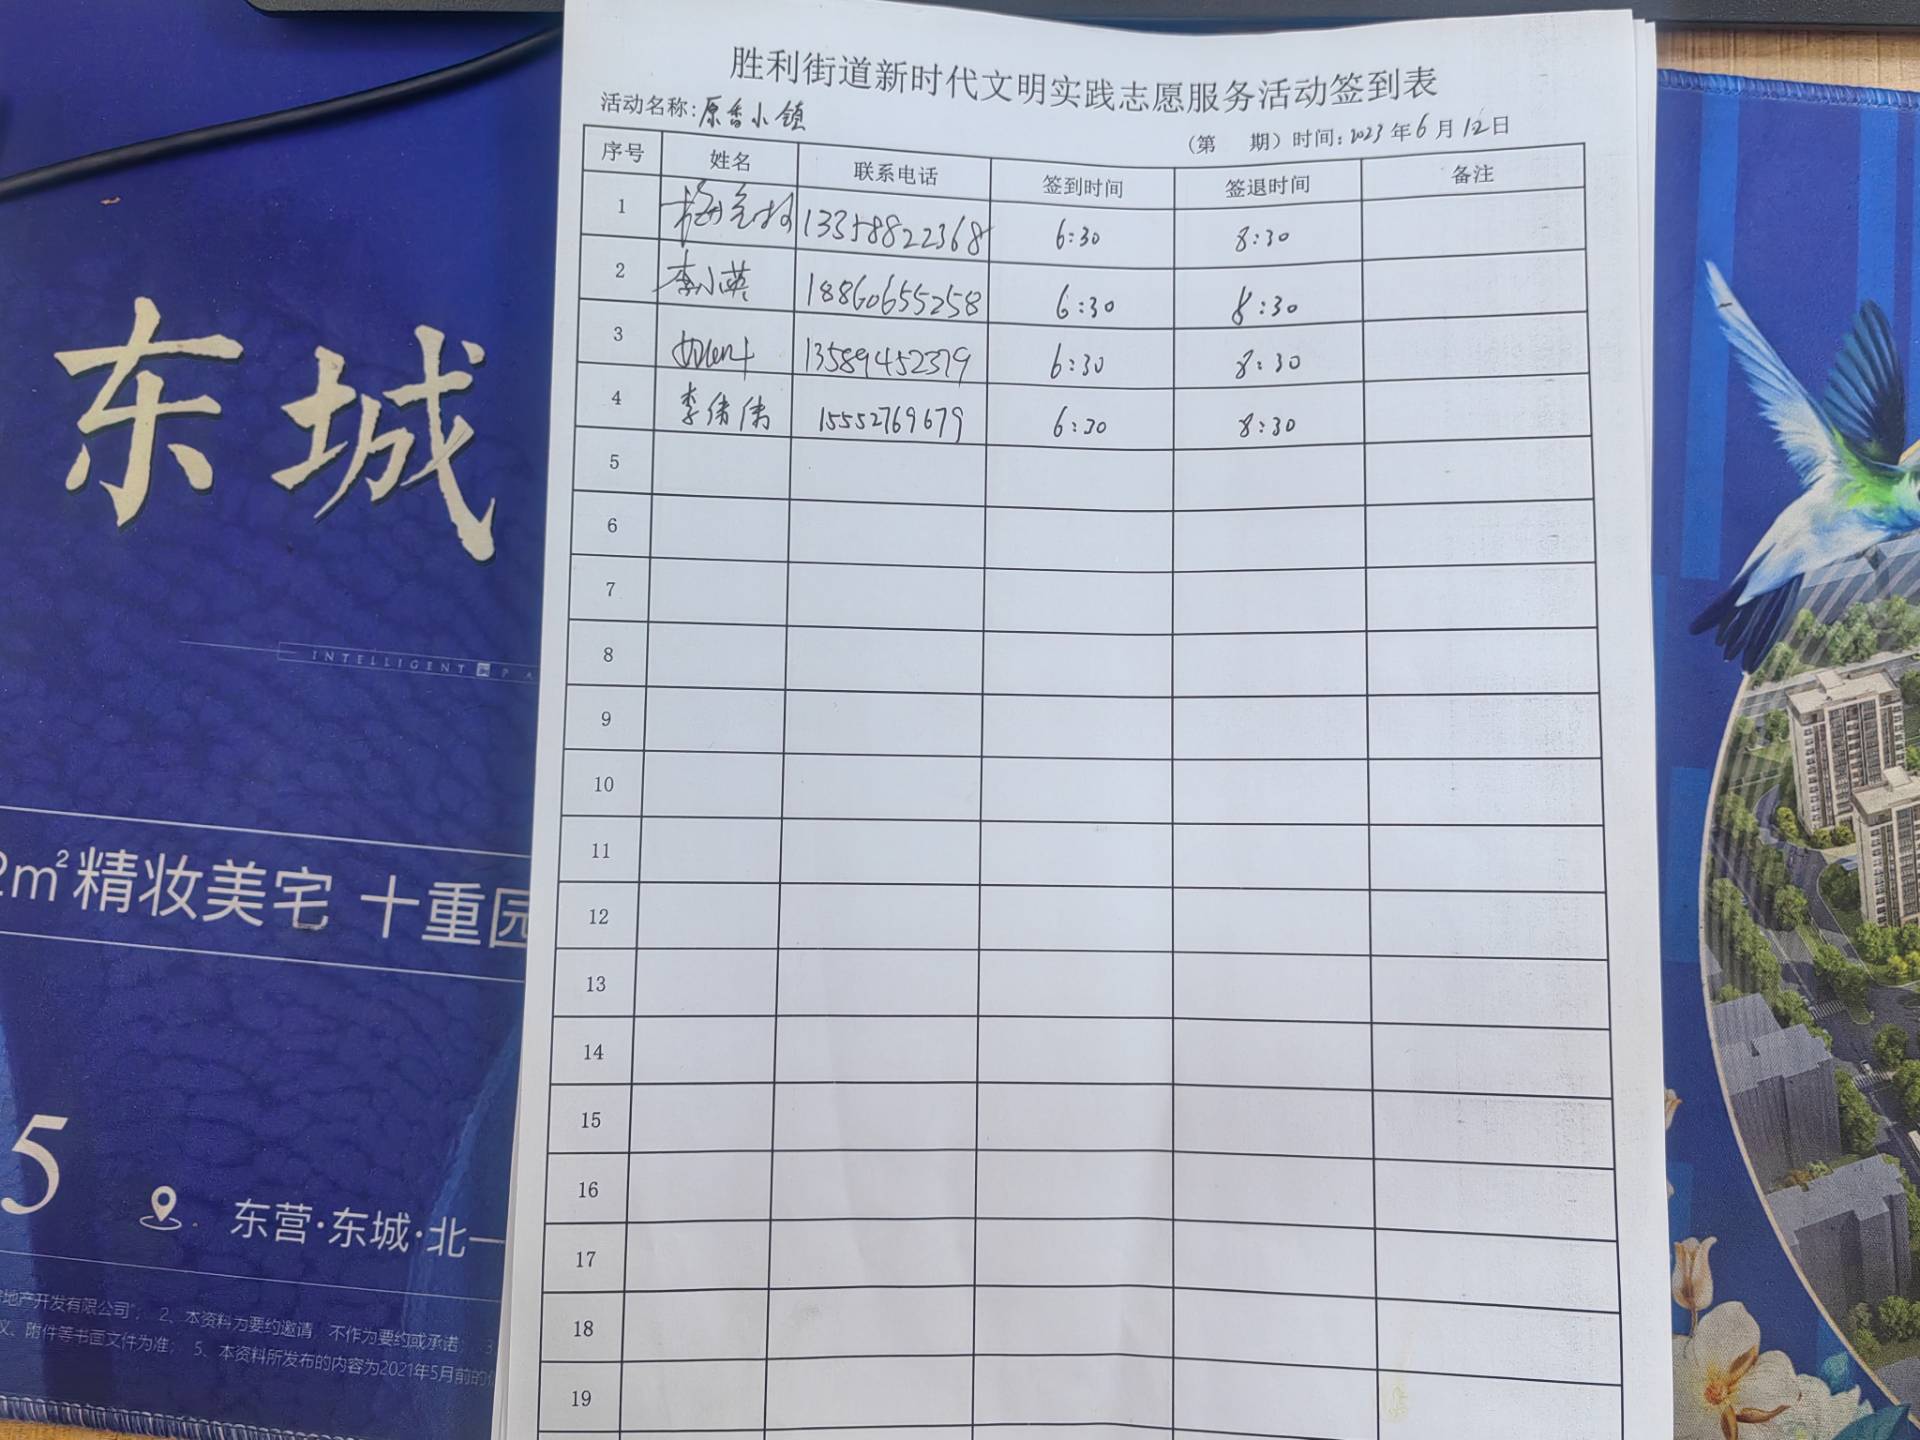 胜利街道新时代文明实践志愿服务活动签到表
活动名称:原香小镇
(第 期)时间:2023年6月12日
序号 姓名 联系电话 签到时间 签退时间 备注
1 13358822368 6:30 8:30
2 李小英 18860655258 6:30 8:30
3 13589452379 6:30 8:30
4 李倩倩 15552769679 6:30 8:30
5
6
7
8
9
10
11
12
13
14
15
16
17
18
19
东城
INTELLIGENT PA
2m²精妆美宅 十重园
5
东营·东城·北一
地产开发有限公司"; 2、本资料为要约邀请 不作为要约或承诺; 3
议、附件等书面文件为准; 5、本资料所发布的内容为2021年5月前的